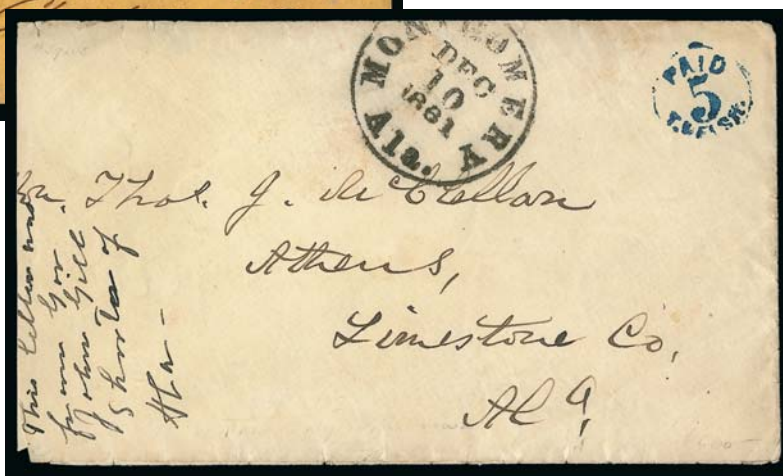 MONTGOMERY Ala.
DEC
10
1861
PAID
5
T. WELSH.
Hon. Thos. J. McClellan
Athens,
Limestone Co,
Ala,
This letter
from Gov
John Gill
Shorter of
Ala -